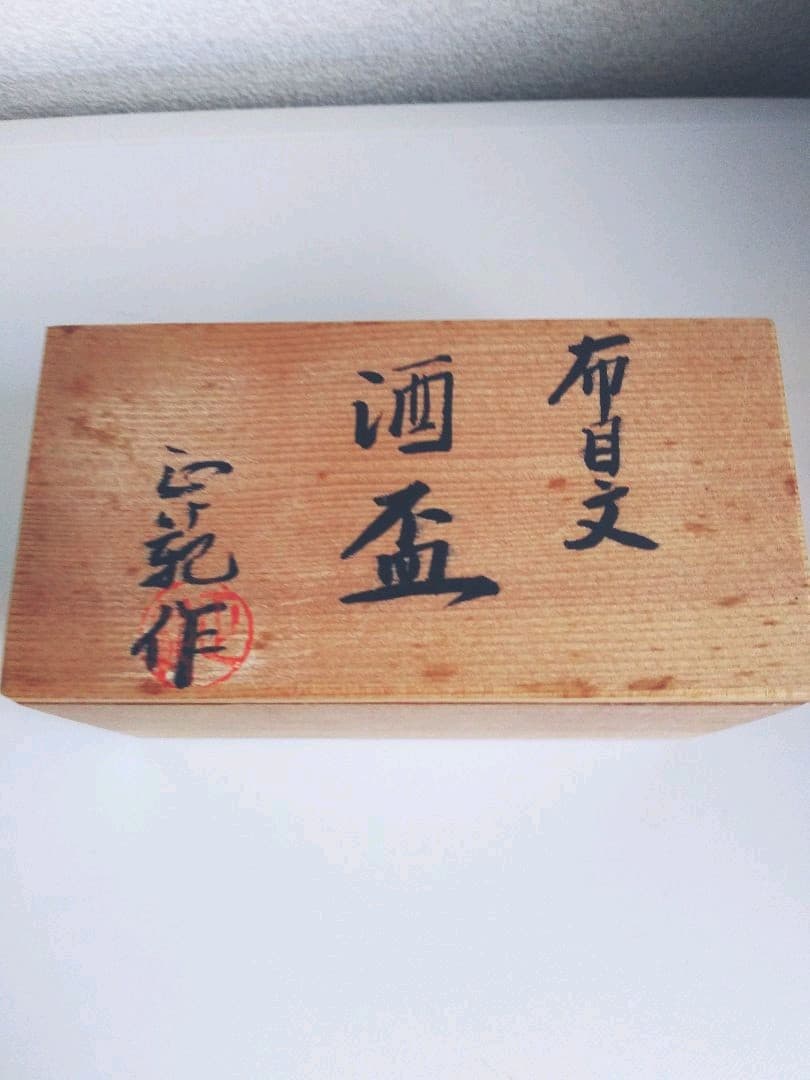 布目文
酒盃
正範作